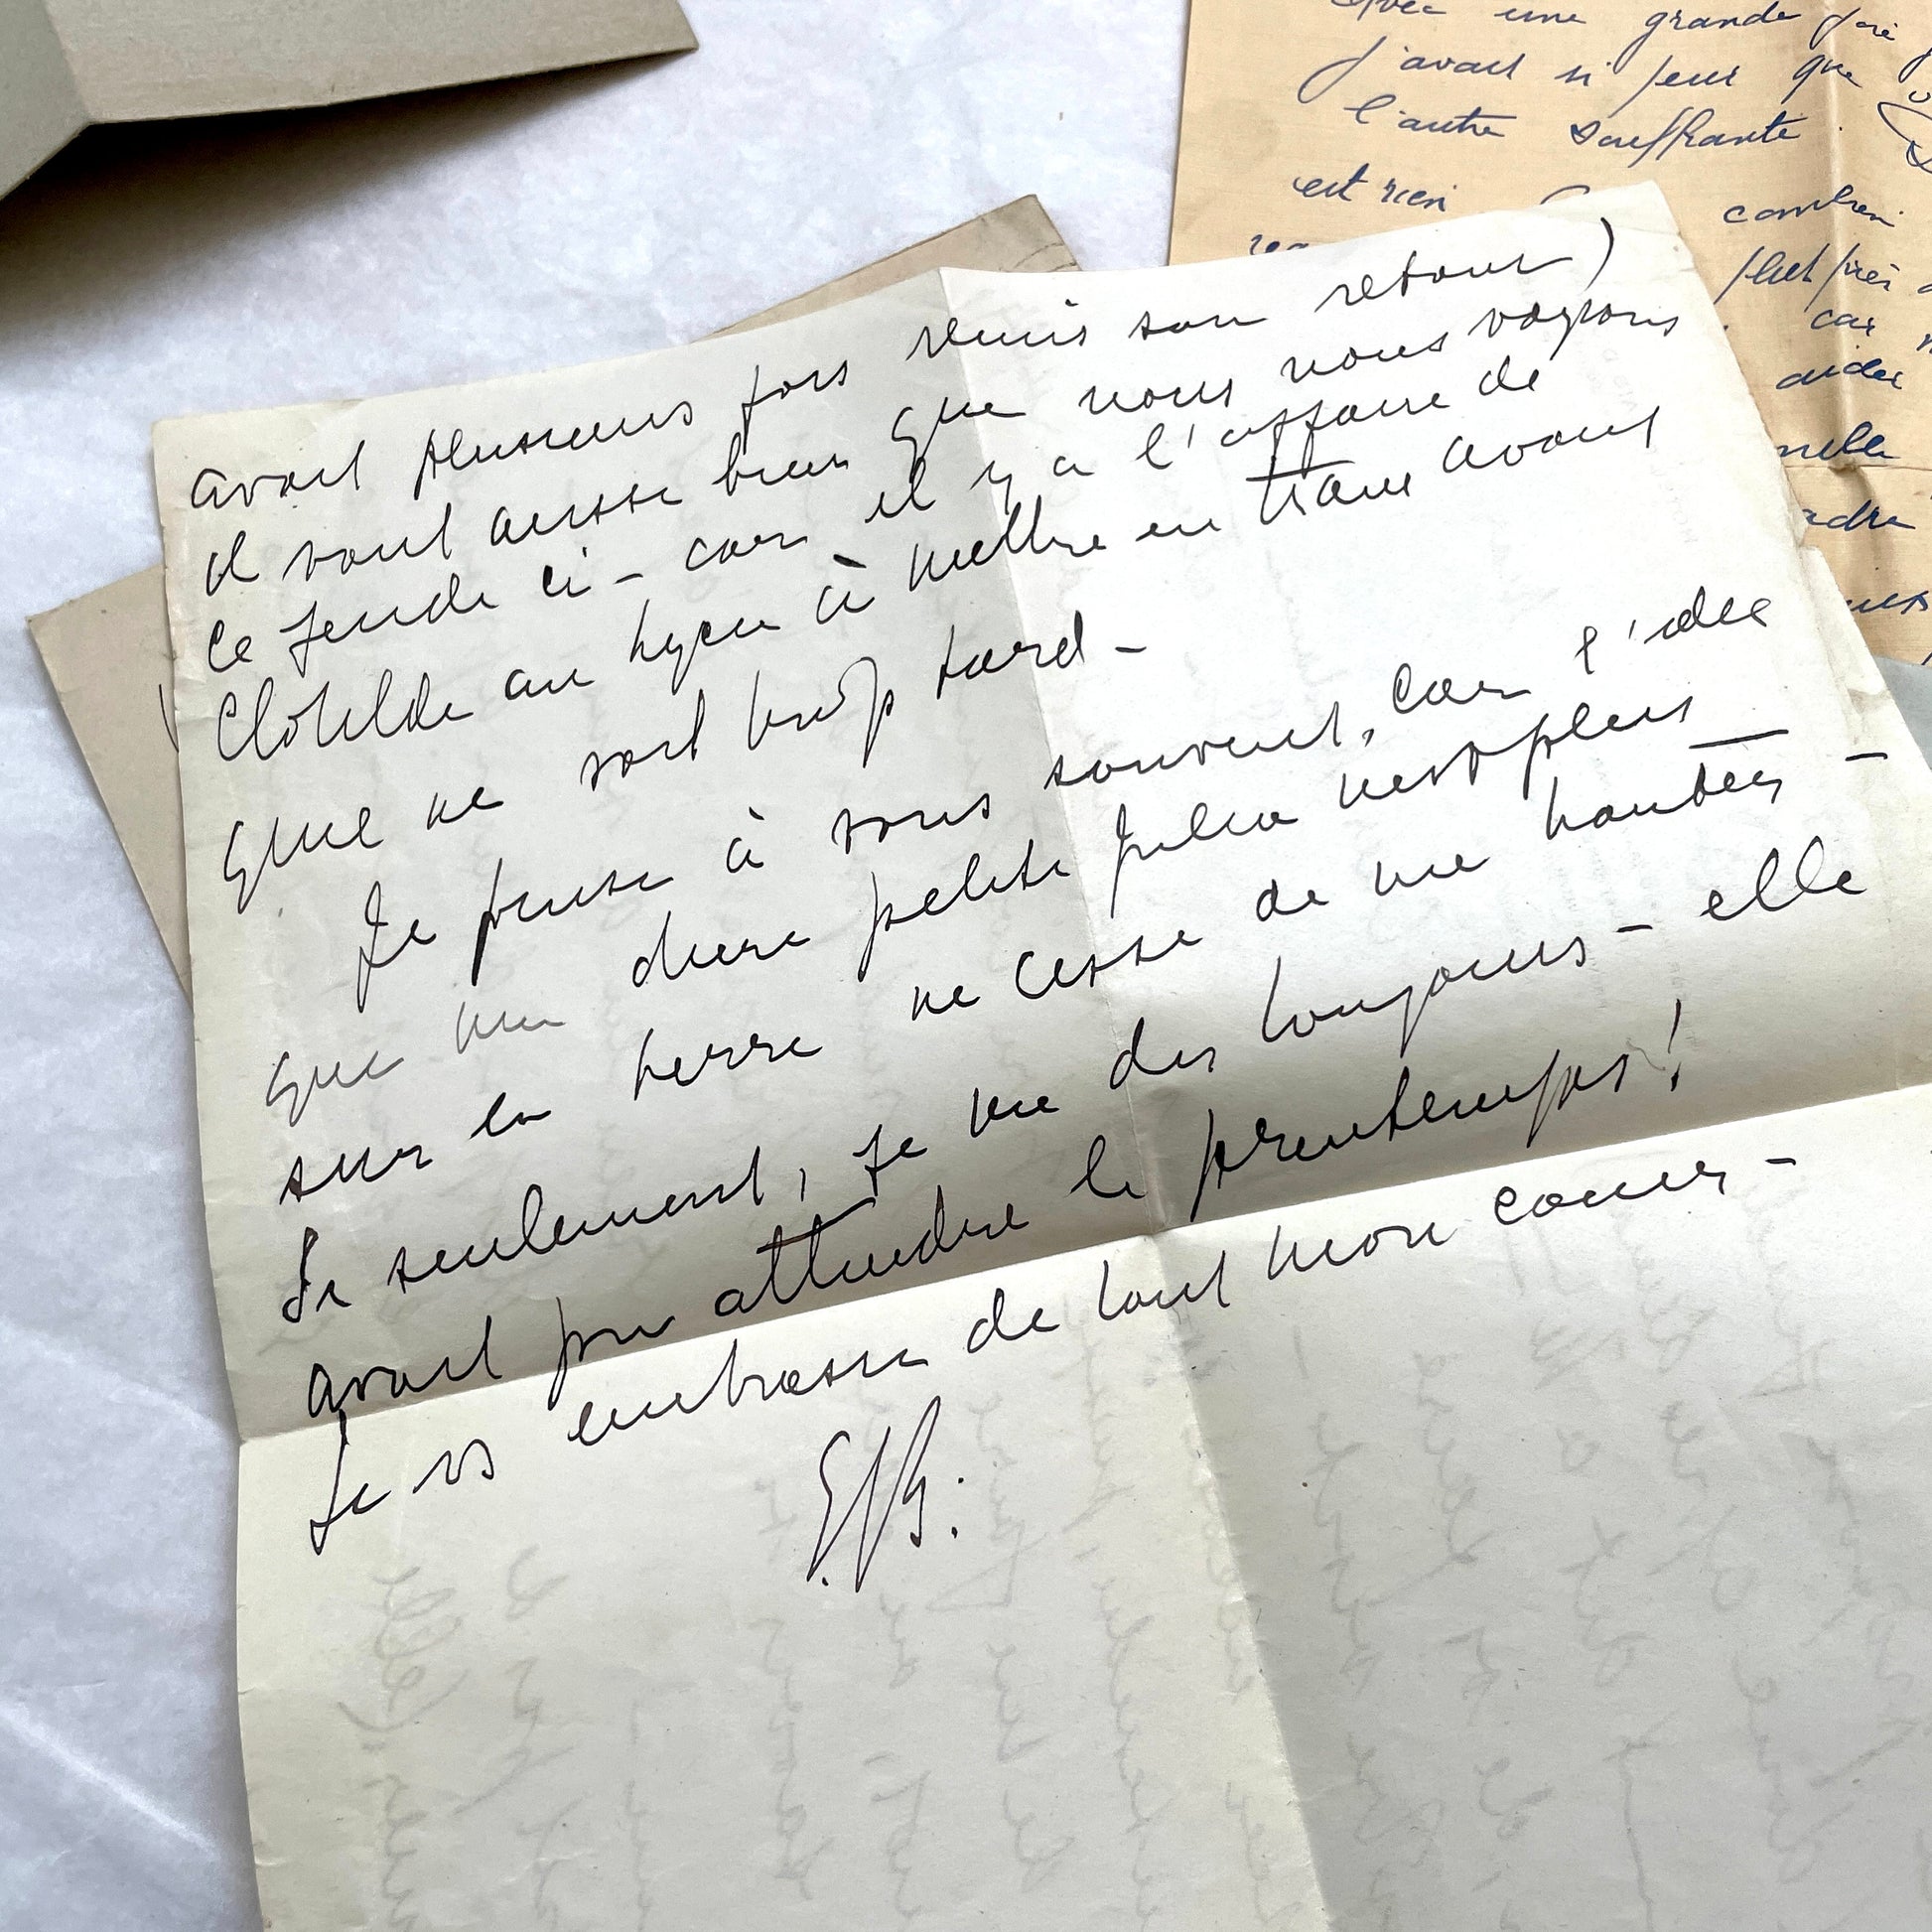 avec une grande joie
j'avais si peur que
l'autre souffrante.
est rien combien
plus près
car
aider
avait plusieurs fois remis son retour)
il vaut aussi bien que nous nous voyons
ce jeudi ci - car il y a l'affaire de
Clotilde au lycée à mettre en train avant
que ne soit trop tard -
Je pense à vous souvent, car l'idée
que ma chère petite Julia n'est plus
sur la terre ne cesse de me hanter -
Si seulement, je me dis toujours - elle
avait pu attendre le printemps!
Je vs embrasse de tout mon coeur -